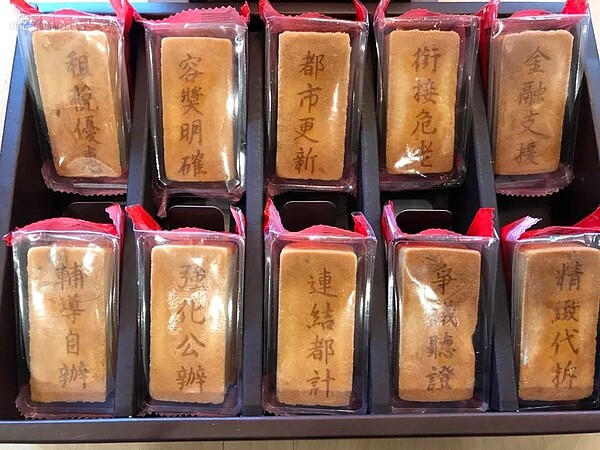 租稅優惠
容獎明確
都市更新
銜接危老
金融支援
輔導自辦
強化公辦
連結都計
爭議聽證
精緻代拆